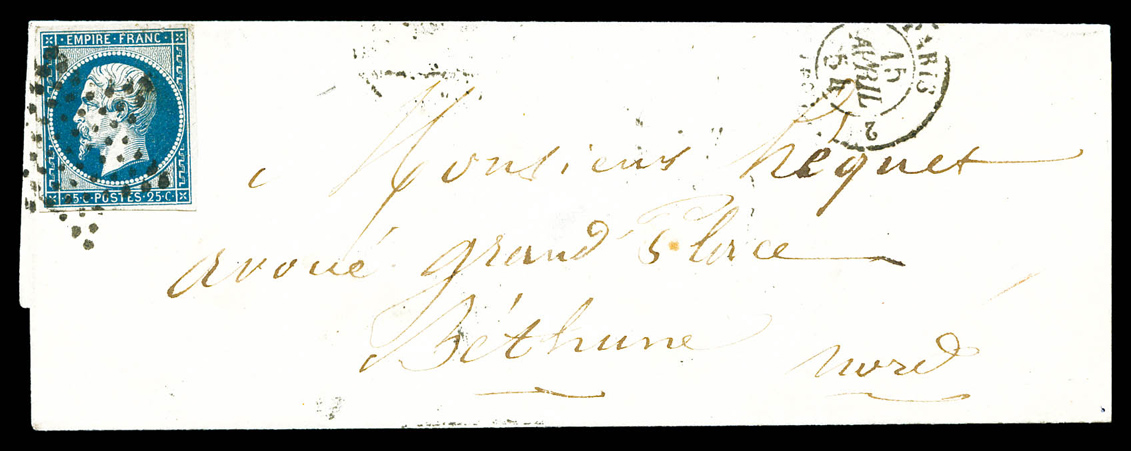 EMPIRE · FRANC ·
25 · C · POSTES · 25 · C ·
PARIS
15
AVRIL
2
à Monsieur Hequet
avoué grand Place
Béthune
nord